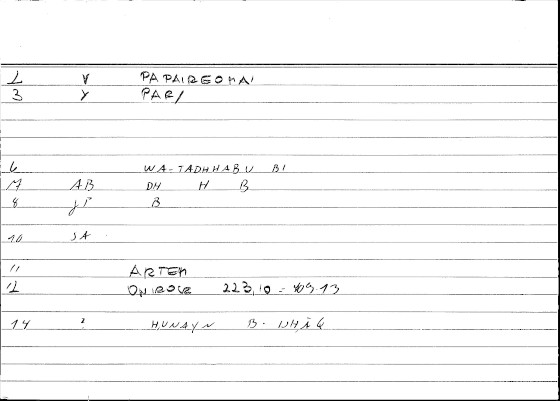 2 V PAPAIREOMAI
3 Y PARI
6 WA-TADHHABU BI
7 AB DH H B
8 JP B
10 SA
11 ARTEM
12 ONIROCR 223,10 = 409.13
14 ? HUNAYN B. ISHĀQ